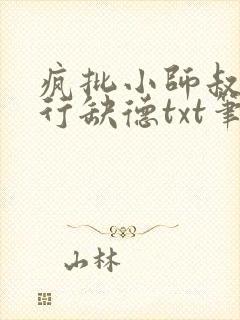 疯批小師叔
行缺德txt筆
山林